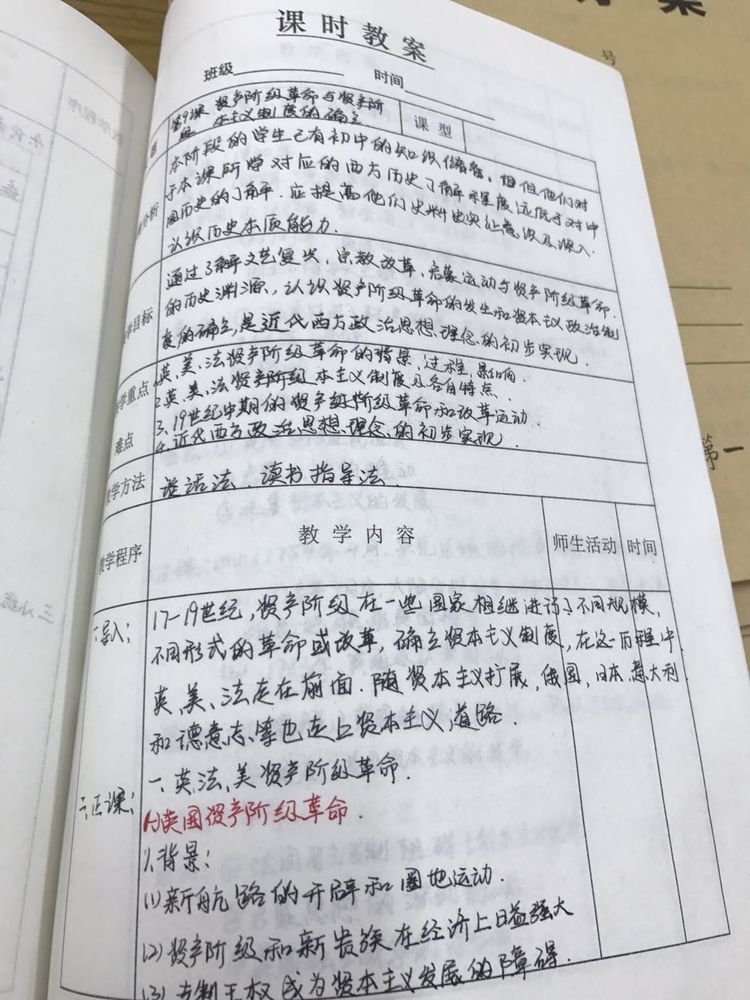 课时教案
班级 时间
第9课 资产阶级革命与资产阶
级 本主义制度的确立
课 型
分析
本阶段的学生已有初中的知识储备,但他们对
于本课所学对应的西方历史了解程度远低于对中
国历史的了解.应提高他们史料史实 意识及深入
认识历史本质能力.
学目标
通过了解文艺复兴,宗教改革,启蒙运动与资产阶级革命.
的历史渊源,认识资产阶级革命的发生和资本主义政治制
度的确立,是近代西方政治思想理念的初步实现.
学重点
难点
1.英、美、法资产阶级革命的背景,过程,影响
2.英、美、法资产阶级本主义制度及各自特点.
3.19世纪中期的资产级阶级革命和改革运动.
4.近代西方政治思想理念的初步实现.
教学方法
谈话法 读书指导法
教学程序
教 学 内 容
师生活动
时间
一导入:
17-19世纪,资产阶级在一些国家相继进行了不同规模,
不同形式的革命或改革,确立资本主义制度,在这一历程中
英、美、法走在前面.随资本主义扩展,俄国,日本.意大利
和德意志等也走上资本主义道路.
二正课:
一.英、法、美资产阶级革命.
(一)英国资产阶级革命.
1.背景:
(1)新航路的开辟和圈地运动.
(2)资产阶级和新贵族在经济上日益强大
(3)专制王权成为资本主义发展的障碍.
案
号
第一